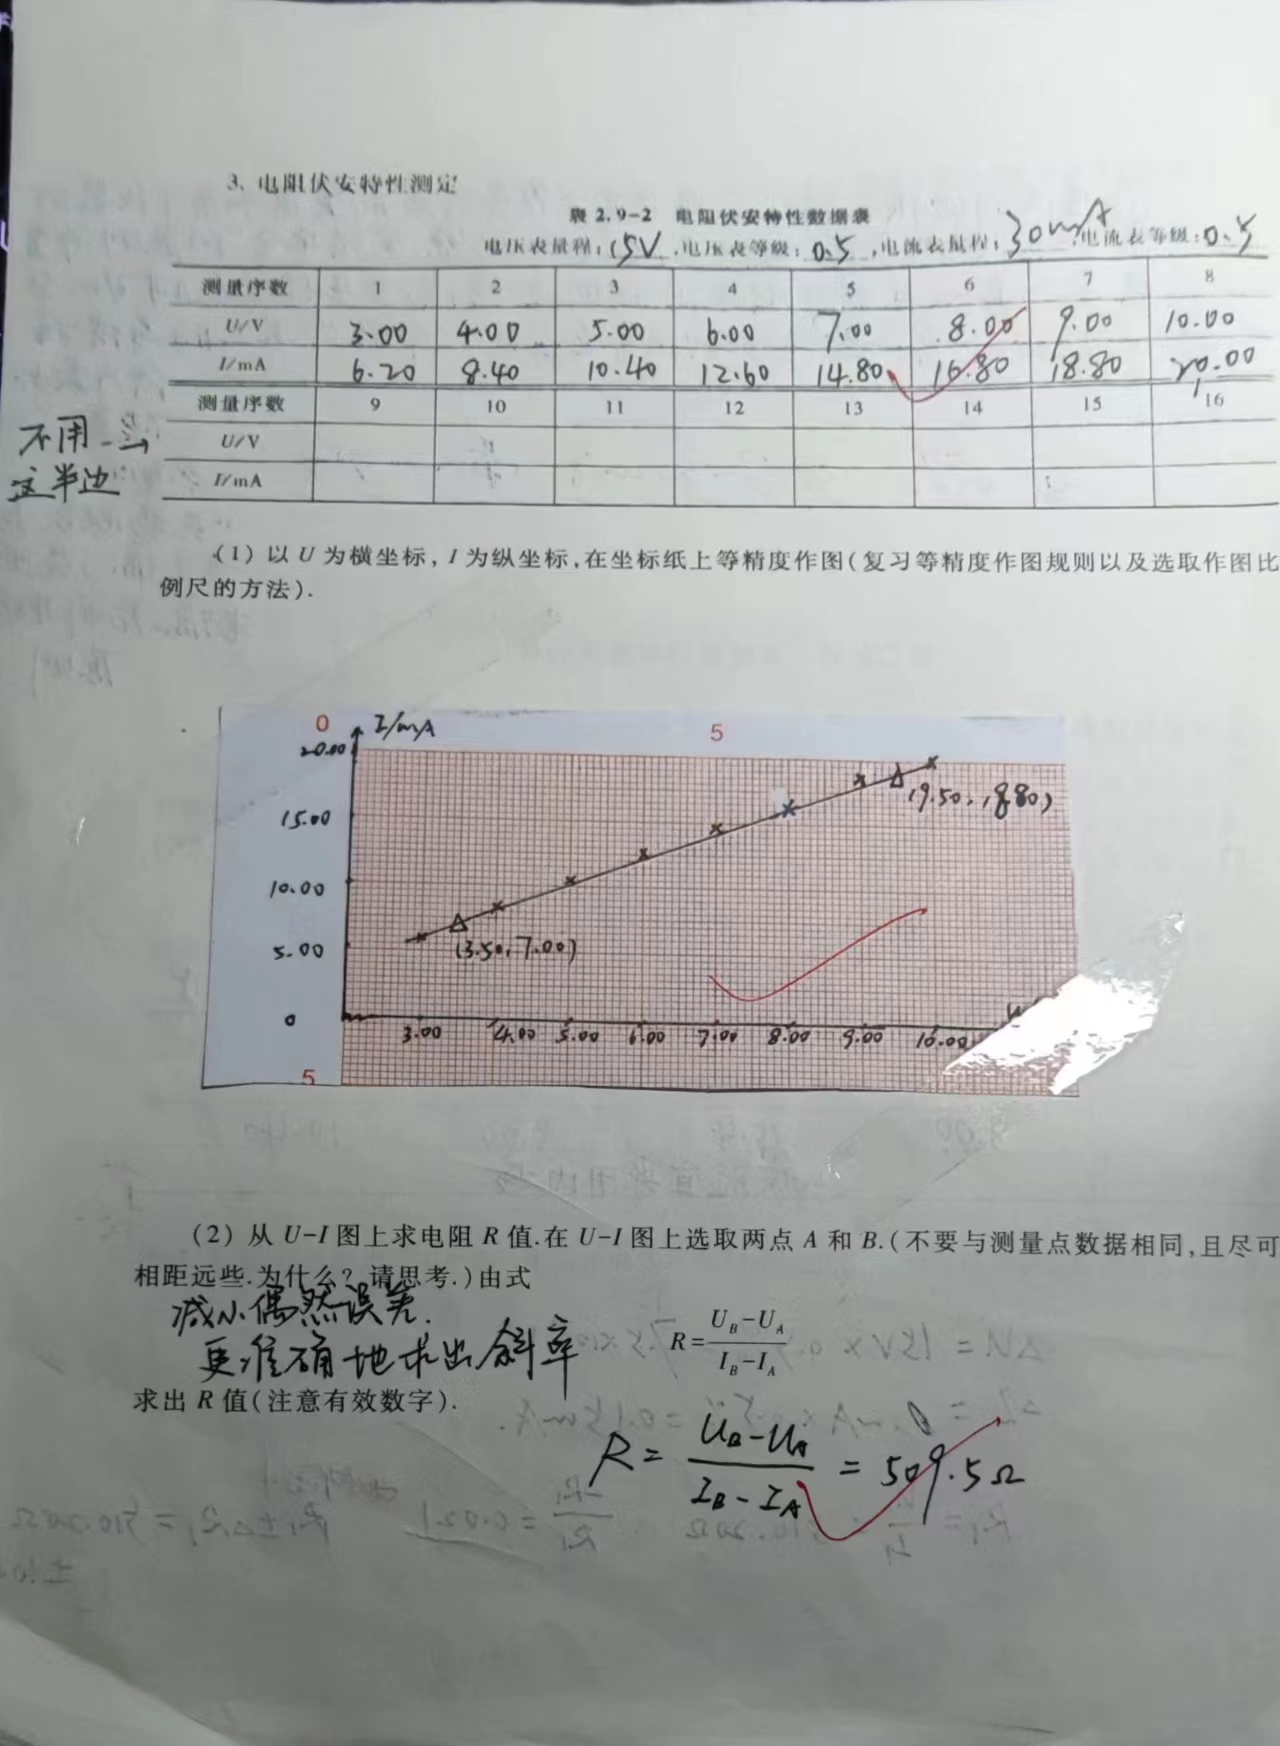 3. 电阻伏安特性测定
表 2.9-2 电阻伏安特性数据表
电压表量程:15V,电压表等级:0.5,电流表量程:30mA,电流表等级:0.5
测量序数 1 2 3 4 5 6 7 8
U/V 3.00 4.00 5.00 6.00 7.00 8.00 9.00 10.00
I/mA 6.20 8.40 10.40 12.60 14.80 16.80 18.80 20.00
测量序数 9 10 11 12 13 14 15 16
U/V
I/mA
不用→
这半边
(1) 以 U 为横坐标, I 为纵坐标,在坐标纸上等精度作图(复习等精度作图规则以及选取作图比
例尺的方法).
0 I/mA 5
20.00
15.00
(9.50, 18.80)
10.00
5.00
(3.50, 7.00)
0
3.00 4.00 5.00 6.00 7.00 8.00 9.00 10.00
5
(2) 从 U-I 图上求电阻 R 值.在 U-I 图上选取两点 A 和 B.(不要与测量点数据相同,且尽可
相距远些.为什么? 请思考.)由式
减小偶然误差.
更准确地求出斜率
R=(U_B-U_A)/(I_B-I_A)
求出 R 值(注意有效数字).
R = (U_B-U_A)/(I_B-I_A) = 509.5Ω